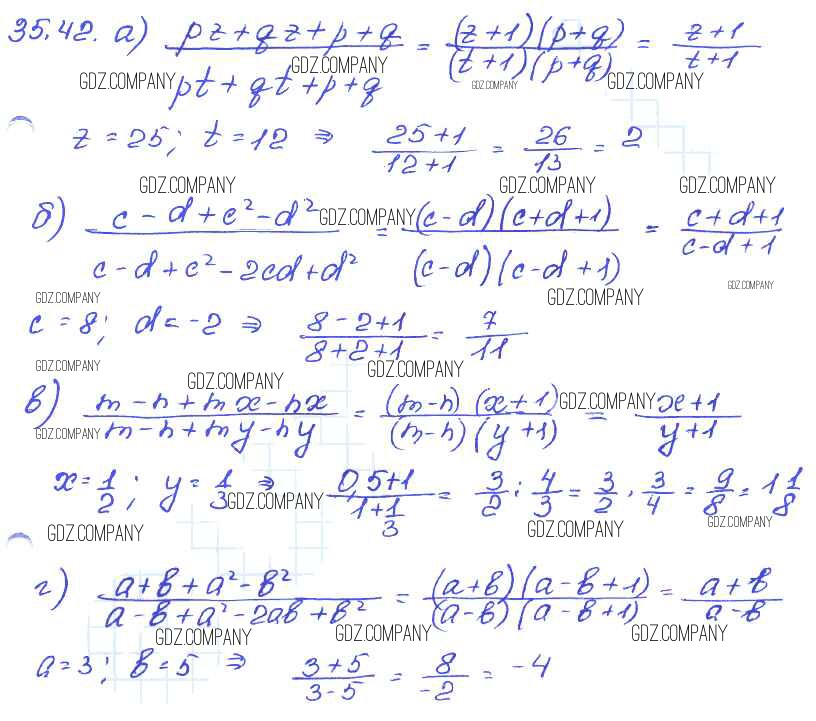 35.42. а) (pz + qz + p + q)/(pt + qt + p + q) = ((z+1)(p+q))/((t+1)(p+q)) = (z+1)/(t+1)
GDZ.COMPANY GDZ.COMPANY GDZ.COMPANY GDZ.COMPANY
z = 25; t = 12 ⇒ (25+1)/(12+1) = 26/13 = 2
GDZ.COMPANY GDZ.COMPANY GDZ.COMPANY
б) (c - d + c² - d²)/(c - d + c² - 2cd + d²) = ((c-d)(c+d+1))/((c-d)(c-d+1)) = (c+d+1)/(c-d+1)
GDZ.COMPANY
GDZ.COMPANY GDZ.COMPANY GDZ.COMPANY
c = 8; d = -2 ⇒ (8-2+1)/(8+2+1) = 7/11
GDZ.COMPANY GDZ.COMPANY GDZ.COMPANY
в) (m - n + mx - nx)/(m - n + my - ny) = ((m-n)(x+1))/((m-n)(y+1)) = (x+1)/(y+1)
GDZ.COMPANY GDZ.COMPANY
x = 1/2; y = 1/3 ⇒ (0,5+1)/(1+1/3) = 3/2 : 4/3 = 3/2 · 3/4 = 9/8 = 1 1/8
GDZ.COMPANY GDZ.COMPANY GDZ.COMPANY GDZ.COMPANY
г) (a + b + a² - b²)/(a - b + a² - 2ab + b²) = ((a+b)(a-b+1))/((a-b)(a-b+1)) = (a+b)/(a-b)
GDZ.COMPANY GDZ.COMPANY GDZ.COMPANY
a = 3; b = 5 ⇒ (3+5)/(3-5) = 8/-2 = -4